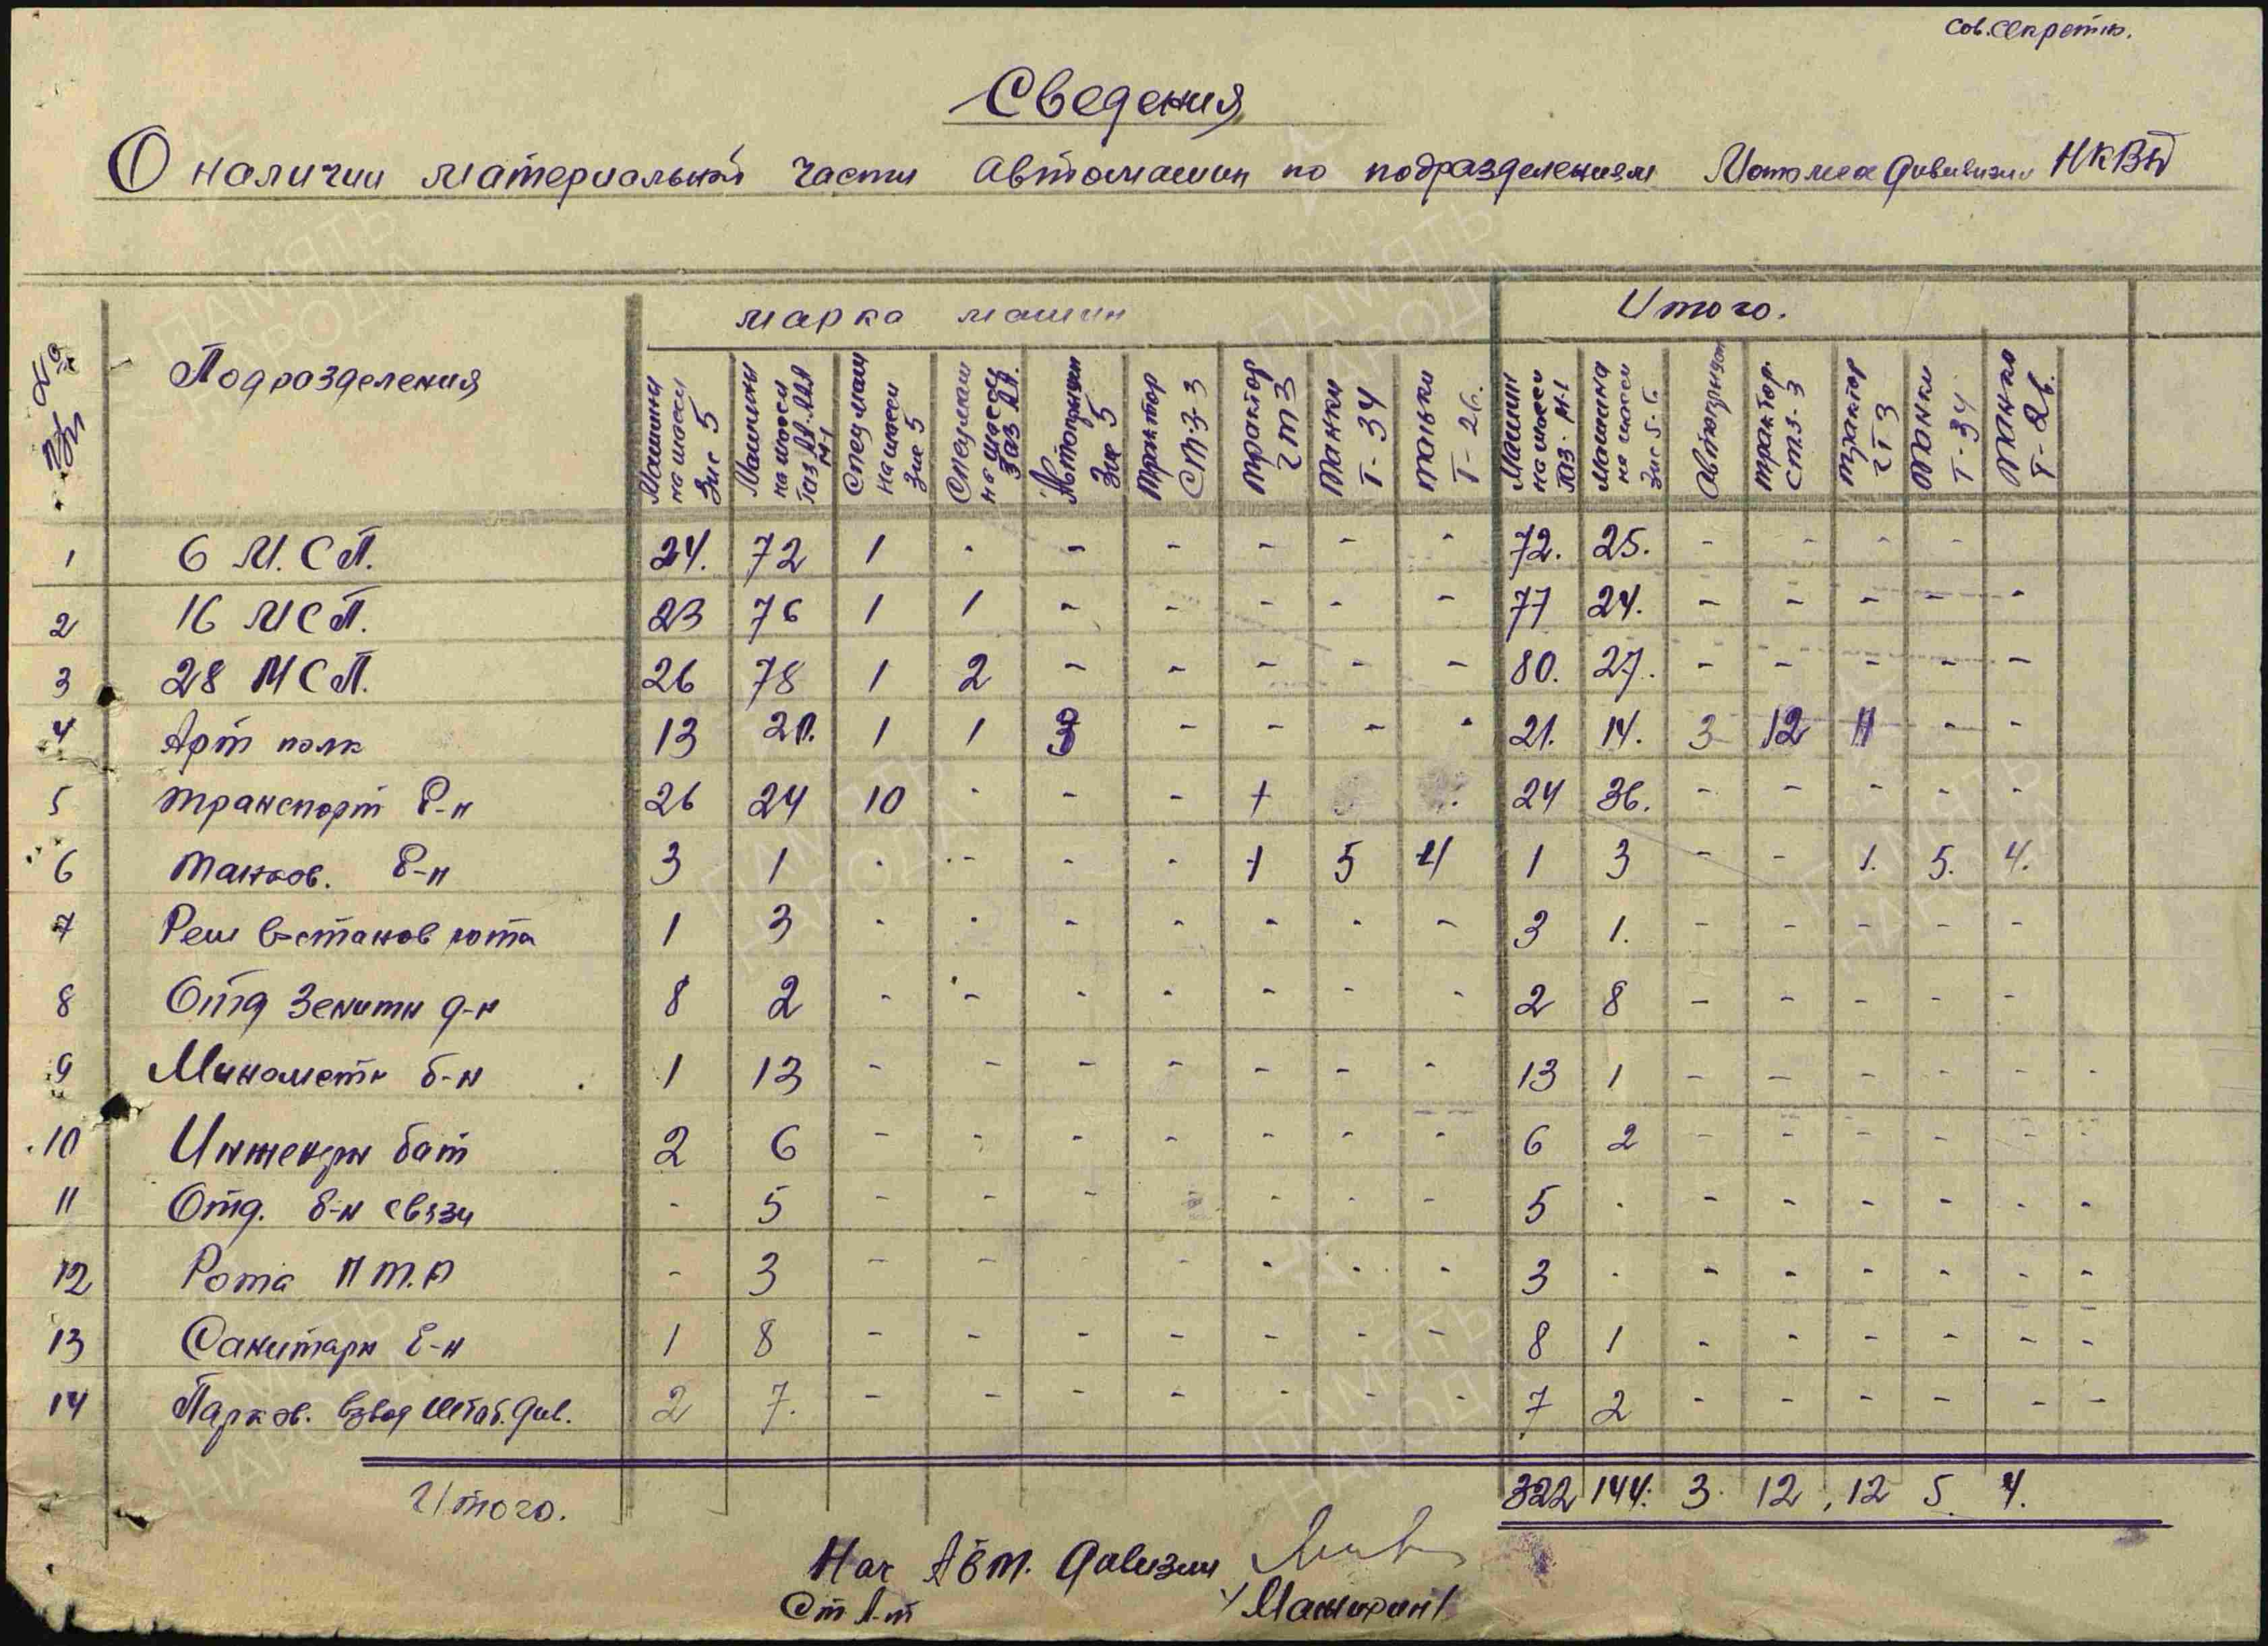 Сов. секретн.
Сведения
О наличии материальной части автомашин по подразделениям Мотомех дивизии НКВД
№№ п/п
Подразделения
марка машин
Итого.
Машины на шасси Зис 5
Машины на шасси Газ АА-ААА М-1
Спец маш на шасси Зис 5
Спец маш на шасси Газ АА.
Автоприцеп Зис 5
Трактор СТЗ-3
Трактор ЧТЗ
Танки Т-34
Танки Т-26.
Машин на шасси Газ-М-1
Машина на шасси Зис 5-6.
Трактор. СТЗ-3
Трактор ЧТЗ
Танки Т-34
Танки Т-26.
1 6 М.СП. 24. 72 1 - - - - - - 72. 25. - - - -
2 16 МСП. 23 76 1 1 - - - - - 77 24. - - - - -
3 28 МСП. 26 78 1 2 - - - - - 80. 27. - - - - -
4 Арт полк 13 20. 1 1 3 - - - - 21. 14. 3 12 11 - -
5 Транспорт б-н 26 24 10 - - - 1 24 36. - - - - -
6 Танков. б-н 3 1 - - - - 1 5 4 1 3 - - 1. 5. 4.
7 Рем в-станов рота 1 3 - - - - - - - 3 1. - - - - -
8 Отд Зенитн д-н 8 2 - - - - - - - 2 8 - - - - -
9 Минометн б-н 1 13 - - - - - - - 13 1 - - - - - -
10 Инженерн бат 2 6 - - - - - - - 6 2 - - - - - -
11 Отд. б-н связи - 5 - - - - - - - 5 - - - - - - -
12 Рота П т.Р - 3 - - - - - - - 3 - - - - - - -
13 Санитарн б-н 1 8 - - - - - - - 8 1 - - - - - -
14 Парков. взвод штаб. див. 2 7. - - - - - - - 7 2 - - - - - -
Итого. 322 144. 3. 12, 12 5. 4.
Нач Авт. дивизии
Ст л-т
ПАМЯТЬ НАРОДА